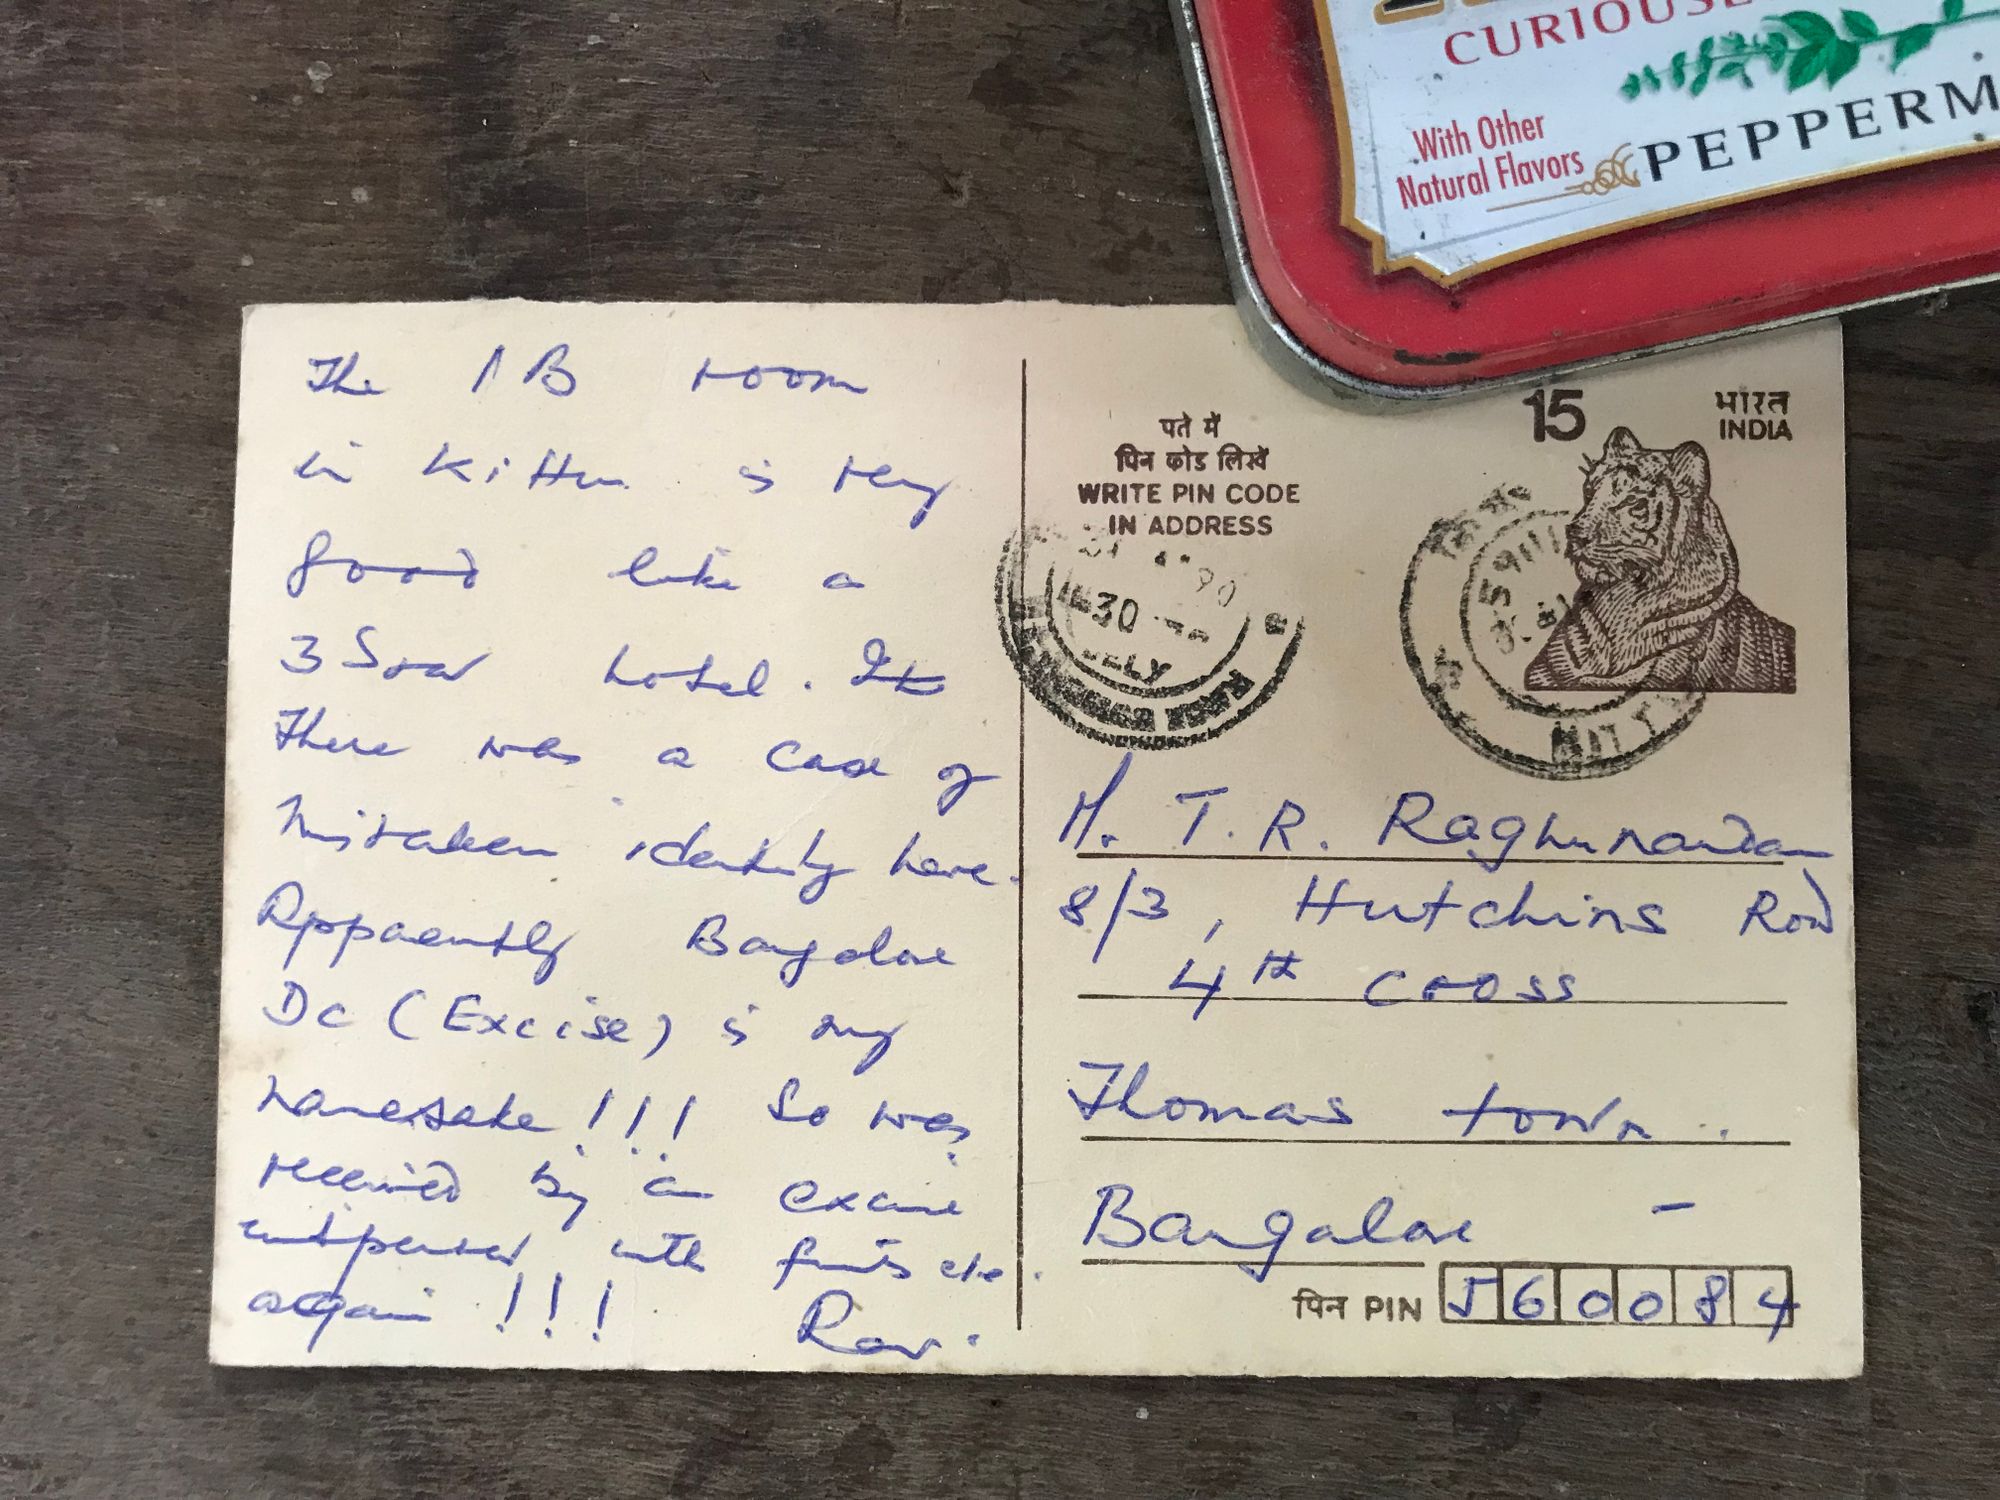 CURIOUS
With Other
Natural Flavors
PEPPERM
The IB room
in Kittur is very
good like a
3 Star hotel. It
There was a case of
mistaken identity here.
Appaently Bangalore
DC (Excise) is my
namesake!!! So was
received by an excise
with fruits etc.
again!!! Ravi.
पते में
पिन कोड लिखें
WRITE PIN CODE
IN ADDRESS
15
भारत
INDIA
30
591115
T. R. Raghunandan
8/3, Hutchins Road
4th Cross
Thomas town.
Bangalore -
पिन PIN 560084